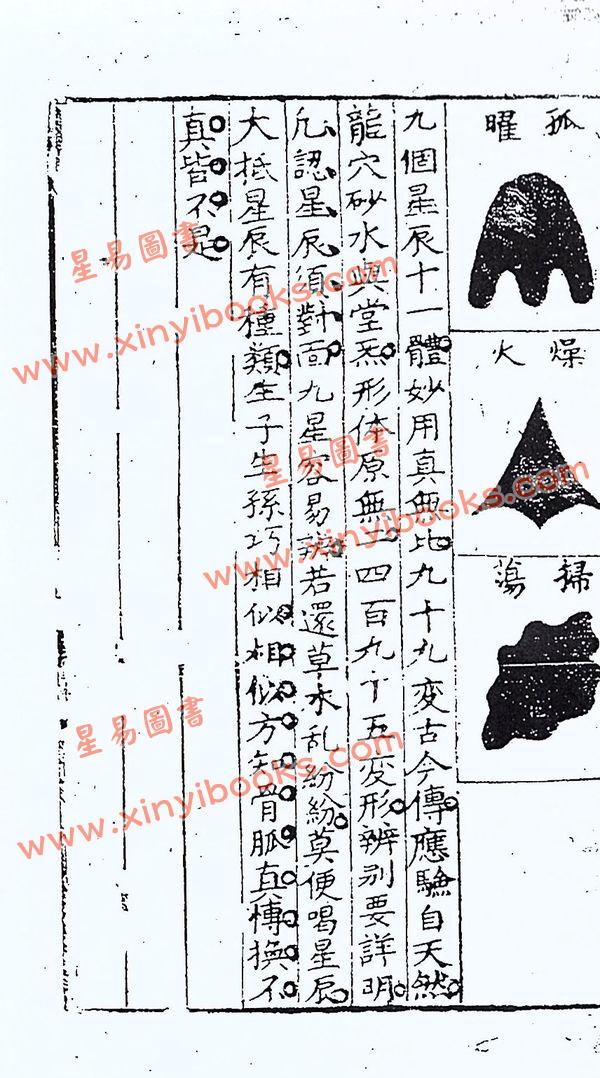 孤曜
燥火
掃蕩
九個星辰十一體妙用真無比九十九变古今傳應驗自天然
龍穴砂水與堂炁形体原無二四百九十五变形辨别要詳明
凢認星辰須對面九星容易辨若還草木乱紛紛莫便喝星辰
大抵星辰有種類生子生孫巧相似相似方知骨脈真博換不
真皆不是
星易圖書
www.xinyibooks.com
星易圖書
www.xinyibooks.com
星易圖書
www.xinyibooks.com